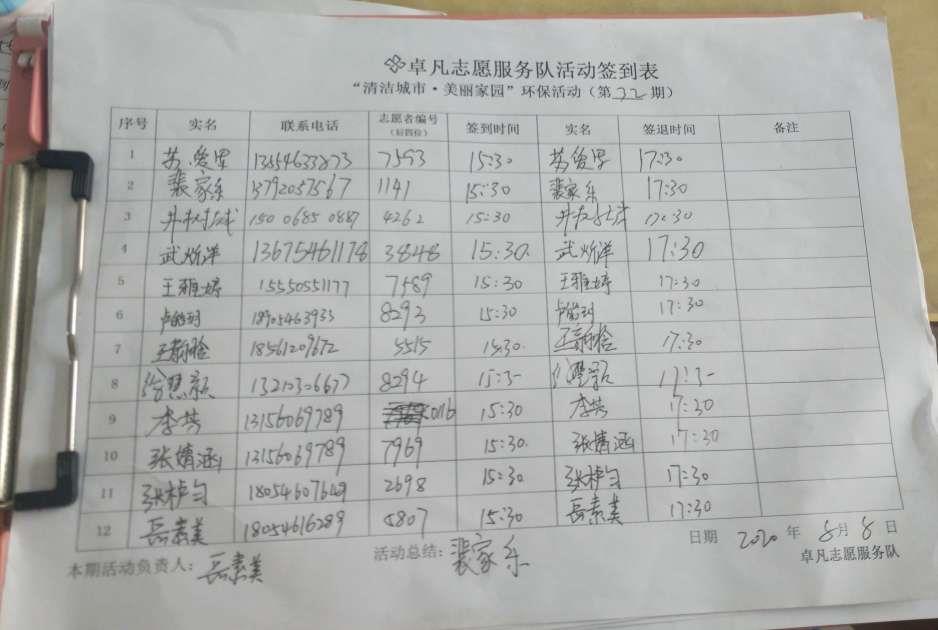 卓凡志愿服务队活动签到表
“清洁城市·美丽家园”环保活动（第22期）
序号 实名 联系电话 志愿者编号（后四位） 签到时间 实名 签退时间 备注
1 苏爱军 13554633873 7593 15:30 苏爱军 17:30
2 裴家乐 13792057567 1141 15:30 裴家乐 17:30
3 150 0685 0887 4262 15:30 17:30
4 武炘洋 13675461178 3848 15:30. 武炘洋 17:30
5 王雅婷 15550551177 7589 15:30 王雅婷 17:30
6 18905463933 8293 15:30 17:30
7 18561209672 5515 15:30. 17:30
8 13210306677 8294
9 李共 13156069789 0116 15:30 李共 17:30
10 张婧涵 13156069789 7969 15:30. 张婧涵 17:30
11 18054607649 2698 15:30 17:30
12 岳素美 18054616289 5807 15:30 岳素美 17:30
日期 2020年8月8日
本期活动负责人：岳素美 活动总结：裴家乐 卓凡志愿服务队